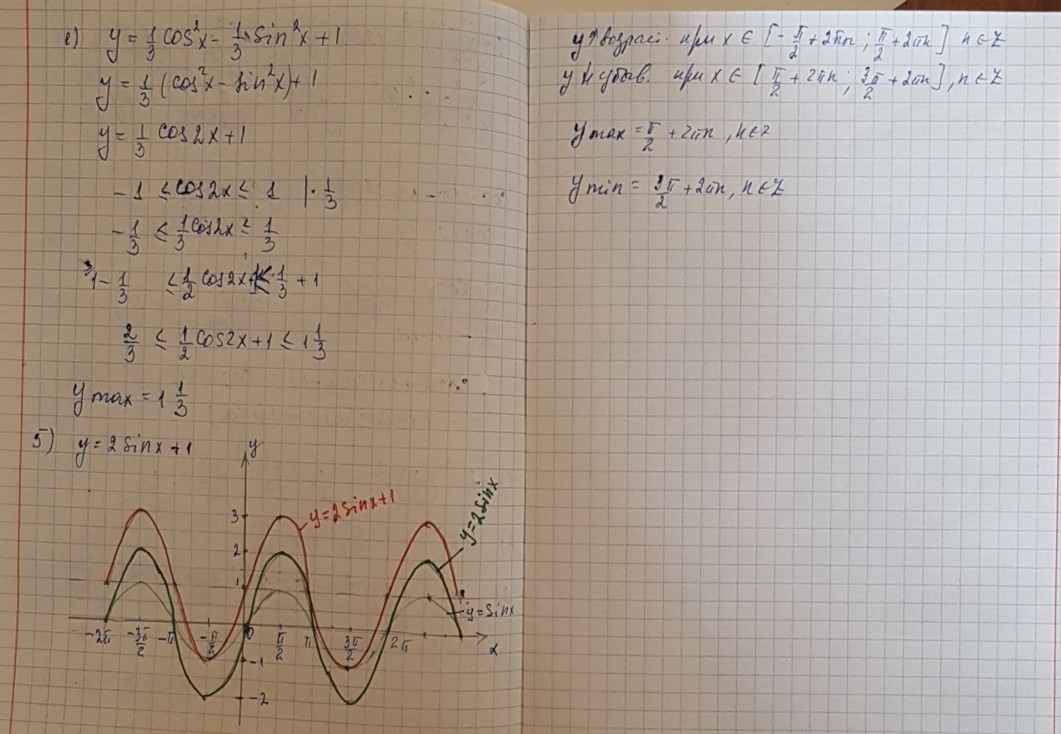 e) y = 1/3 cos²x - 1/3 · sin²x + 1
y = 1/3 (cos²x - sin²x) + 1
y = 1/3 cos2x + 1
-1 ≤ cos2x ≤ 1 | · 1/3
-1/3 ≤ 1/3 cos2x ≤ 1/3
1 - 1/3 ≤ 1/2 cos2x + 1 ≤ 1/3 + 1
2/3 ≤ 1/2 cos2x + 1 ≤ 1 1/3
y max = 1 1/3
5) y = 2 sinx + 1
y
3
2
1
y=2sinx+1
y=2sinx
y=sinx
-2π -3π/2 -π -π/2 0 π/2 π 3π/2 2π x
-1
-2
y↑ возрас. при x ∈ [-π/2 + 2πn ; π/2 + 2πn] n ∈ Z
y↓ убыв. при x ∈ [π/2 + 2πn ; 3π/2 + 2πn], n ∈ Z
y max = π/2 + 2πn, n ∈ Z
y min = 3π/2 + 2πn, n ∈ Z